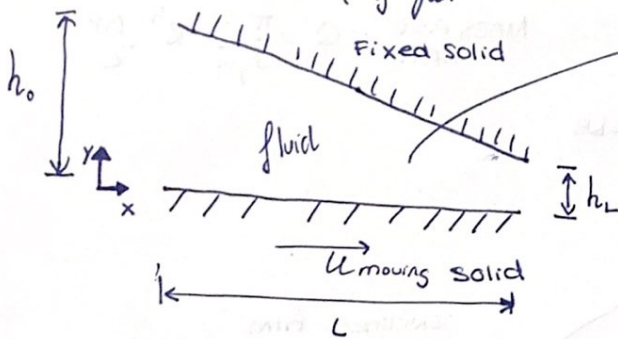 Fixed Solid
h₀
fluid
y
x
h_L
U moving solid
L